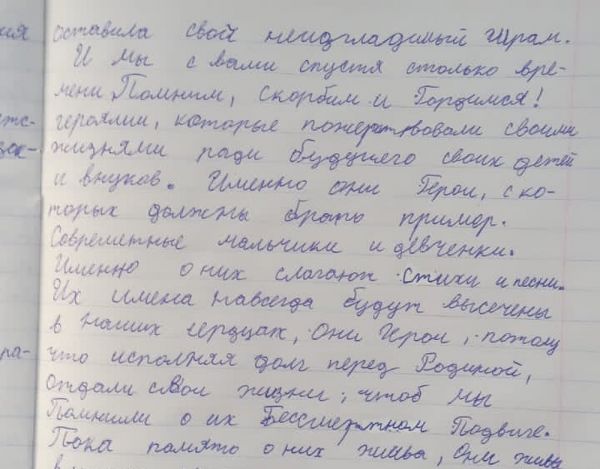 ия оставила свой неизгладимый шрам.
И мы с вами спустя столько вре-
мени Помним, скорбим и Гордимся!
героями, которые пожертвовали своими
жизнями ради будущего своих детей
и внуков. Именно они Герои, с ко-
торых должны брать пример.
Современные мальчики и девченки.
Именно о них слагают стихи и песни.
Их имена навсегда будут высечены
в наших сердцах, Они Герои, потому
ра- что исполняя долг перед Родиной,
Отдали свои жизни, чтоб мы
Помнили о их Бессмертном Подвиге.
Пока память о них жива, Они живы